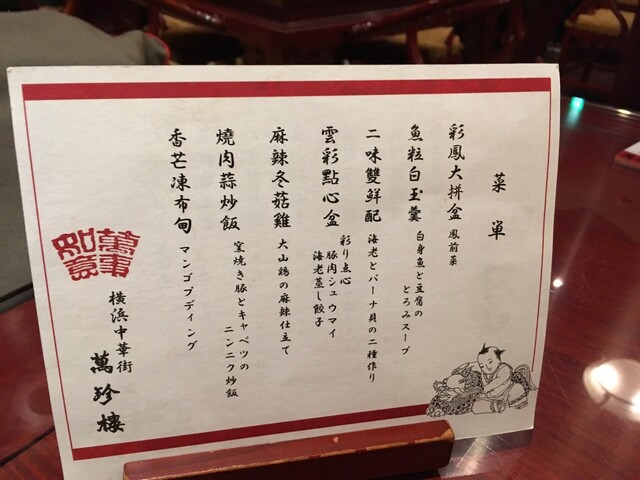 菜単
彩鳳大拼盆 鳳前菜
魚粒白玉羹 白身魚と豆腐の
とろみスープ
二味雙鮮配 海老とパーナ貝の二種作り
雲彩點心盆 彩り点心
豚肉シュウマイ
海老蒸し餃子
麻辣冬菇雞 大山鶏の麻辣仕立て
燒肉蒜炒飯 窯焼き豚とキャベツの
ニンニク炒飯
香芒凍布甸 マンゴプディング
萬事
如意
横浜中華街
萬珍樓